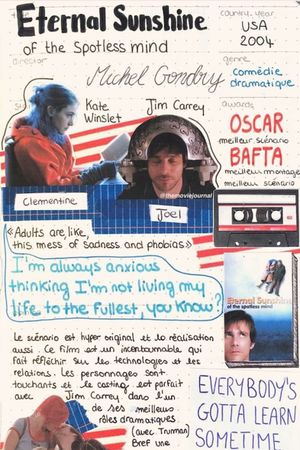 Eternal Sunshine
of the Spotless mind
country, year
USA
2004
director
Michel Gondry
genre
comédie
dramatique
Kate
Winslet
Jim Carrey
awards
OSCAR
meilleur scénario
BAFTA
meilleur montage
meilleur scénario
@themoviejournal
Clementine
Joel
«Adults are, like,
this mess of sadness and phobias»
I'm always anxious
thinking I'm not living my
life to the fullest, you know?
Eternal Sunshine
of the spotless mind
Le scénario est hyper original et la réalisation
aussi. Ce film est un incontournable qui
fait réfléchir sur les technologies et les
relations. Les personnages sont
touchants et le casting est parfait
avec Jim Carrey dans l'un
de ses meilleurs
rôles dramatiques
(avec Truman)
Bref une
EVERYBODY'S
GOTTA LEARN
SOMETIME